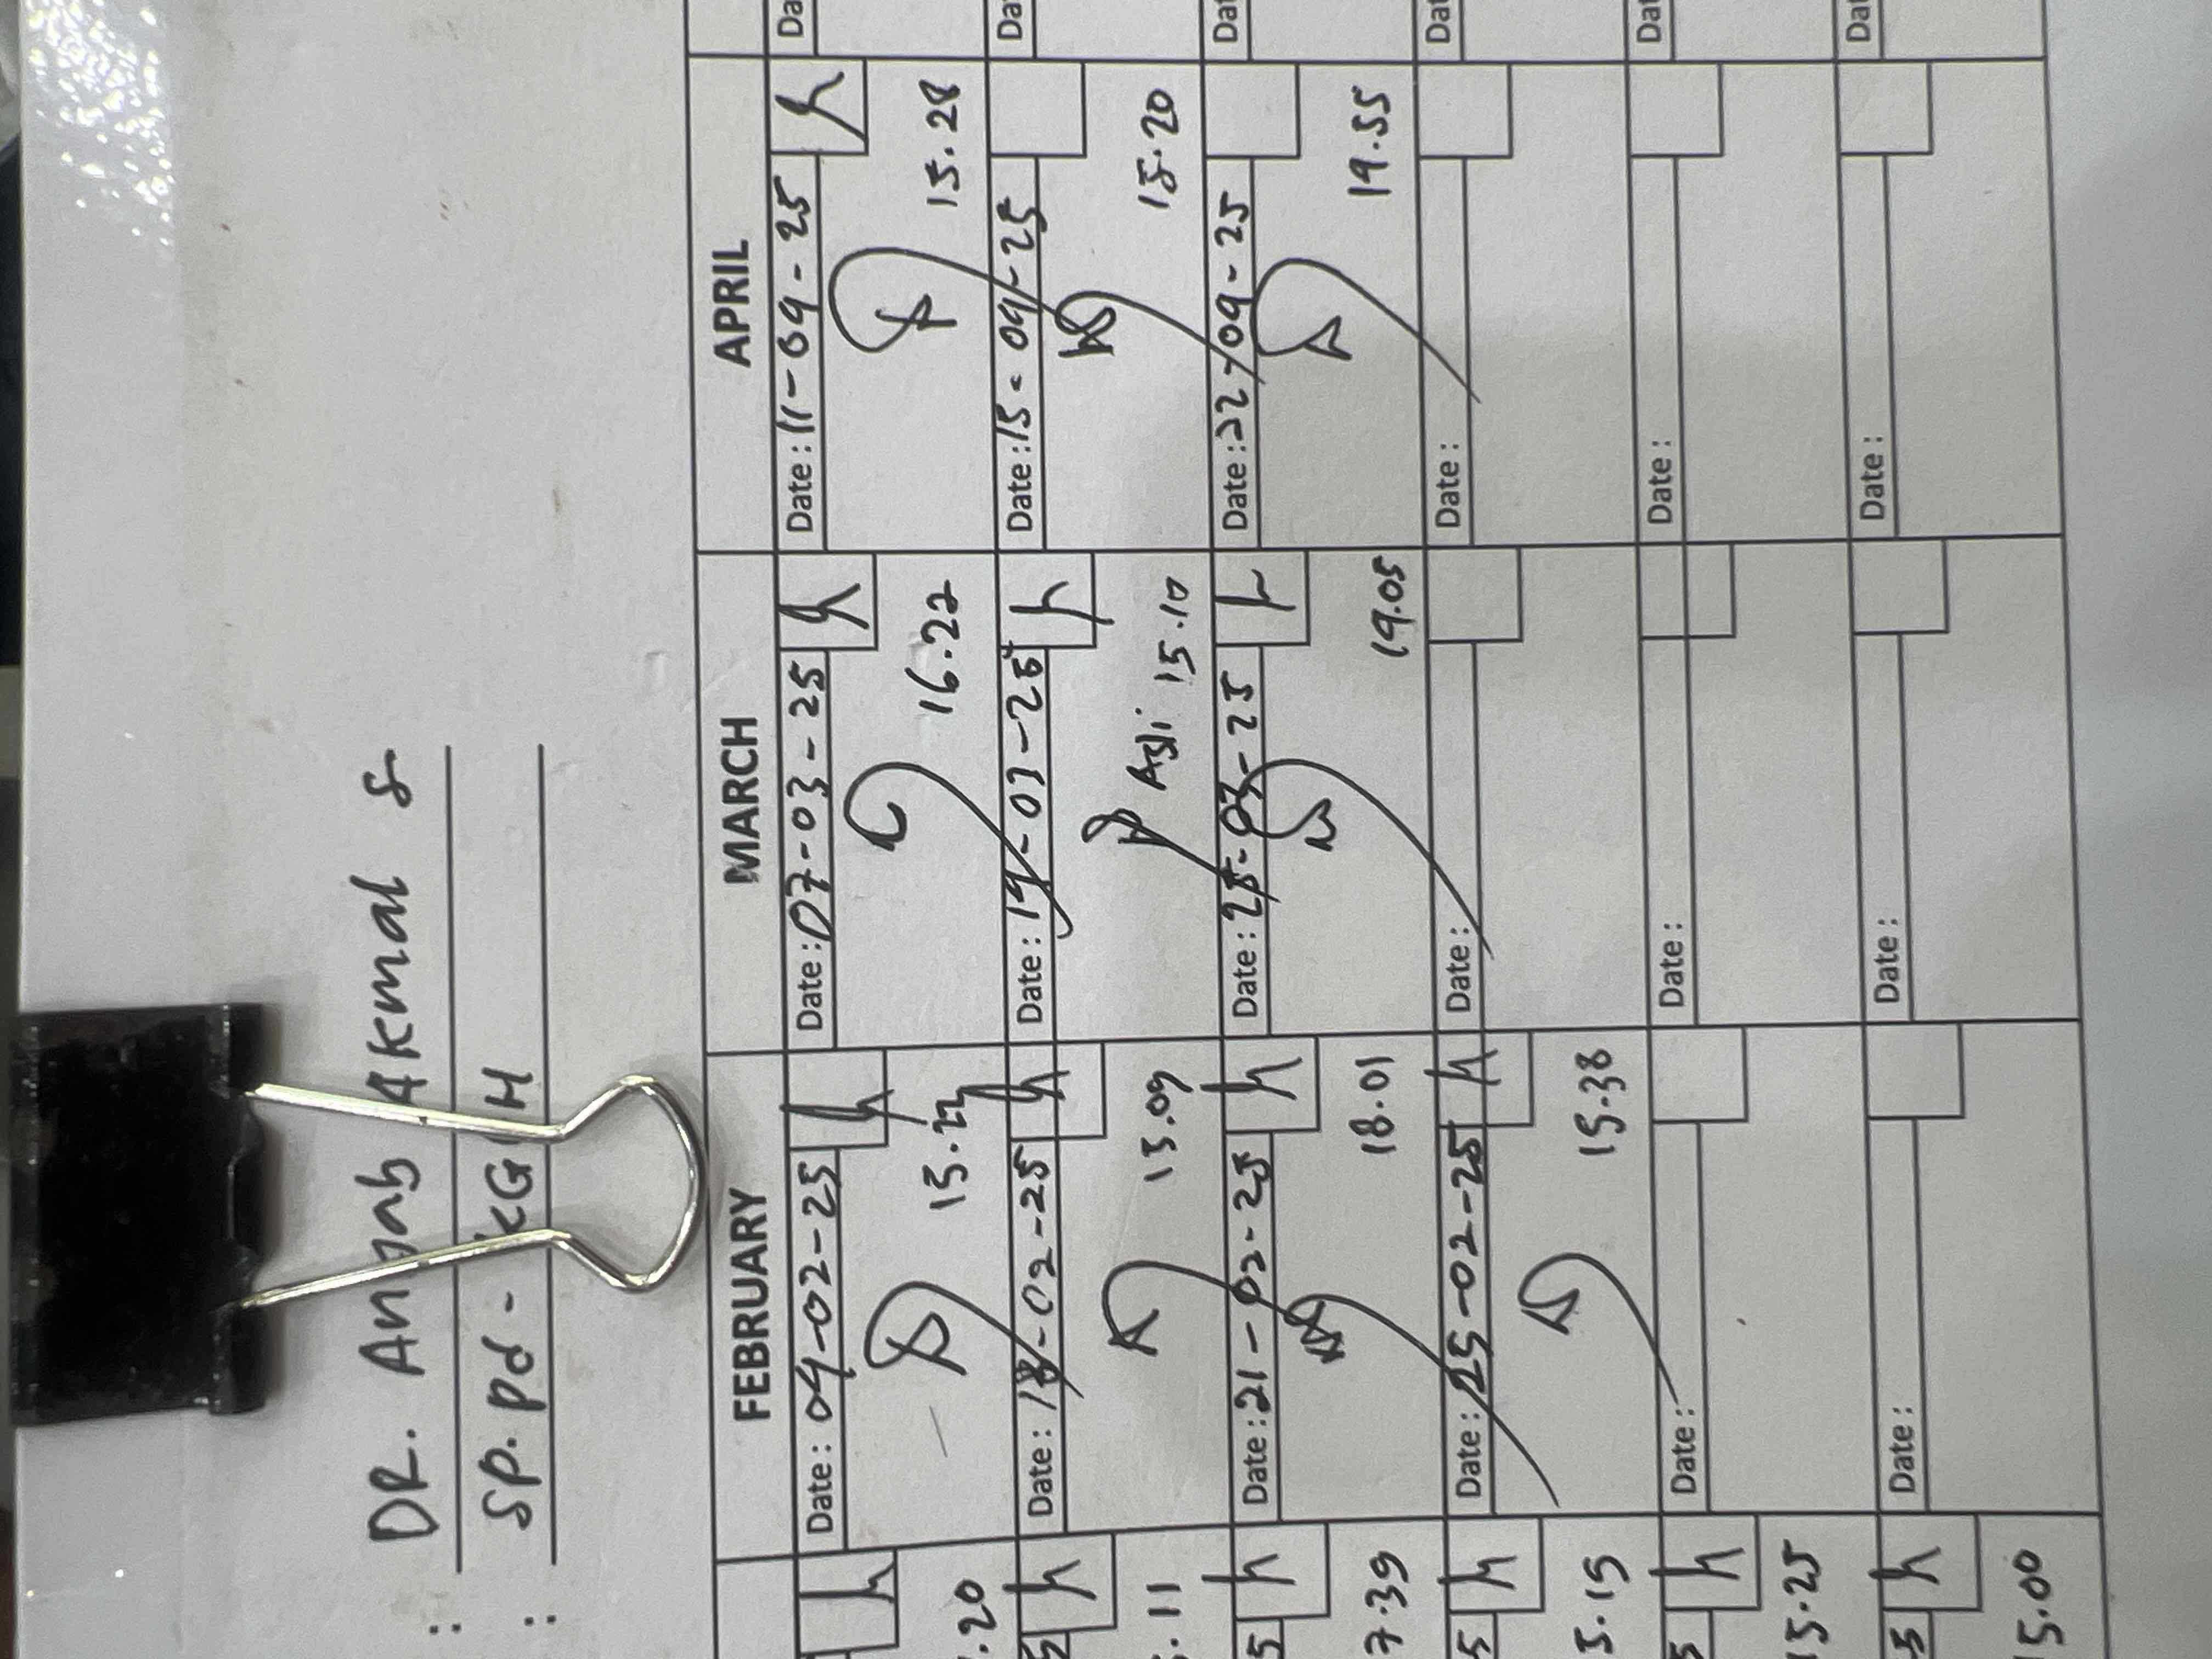 : DR. Annab Akmal S
: SP. Pd - KGH
FEBRUARY MARCH APRIL
Date: 04-02-25 Date: 07-03-25 Date: 11-04-25 Da
.20 15.22 16.22 15.28
5 Date: 18-02-25 Date: 14-03-25 Date: 15-04-25 Da
.11 15.09 Asli 15.10 15.20
5 Date: 21-02-25 Date: 25-03-25 Date: 22-04-25 Dat
7.39 18.01 19.05 19.55
5 Date: 25-02-25 Date: Date: Dat
5.15 15.38
5 Date: Date: Date: Dat
15.25
5 Date: Date: Date: Dat
5.00